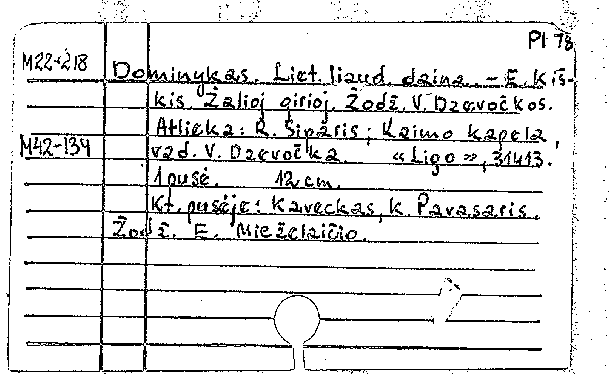 Pl 78
M22-218
Dominykas. Liet. liaud. daina. - E. Kiš-
kis. Žalioj girioj. Žodž. V. Dzevočkos.
Atlieka: R. Siparis; Kaimo kapela,
M42-134 vad. V. Dzevočka. «Ligo», 31413.
1 pusė. 12 cm.
Kt. pusėje: Kaveckas, K. Pavasaris.
Žodž. E. Mieželaičio.